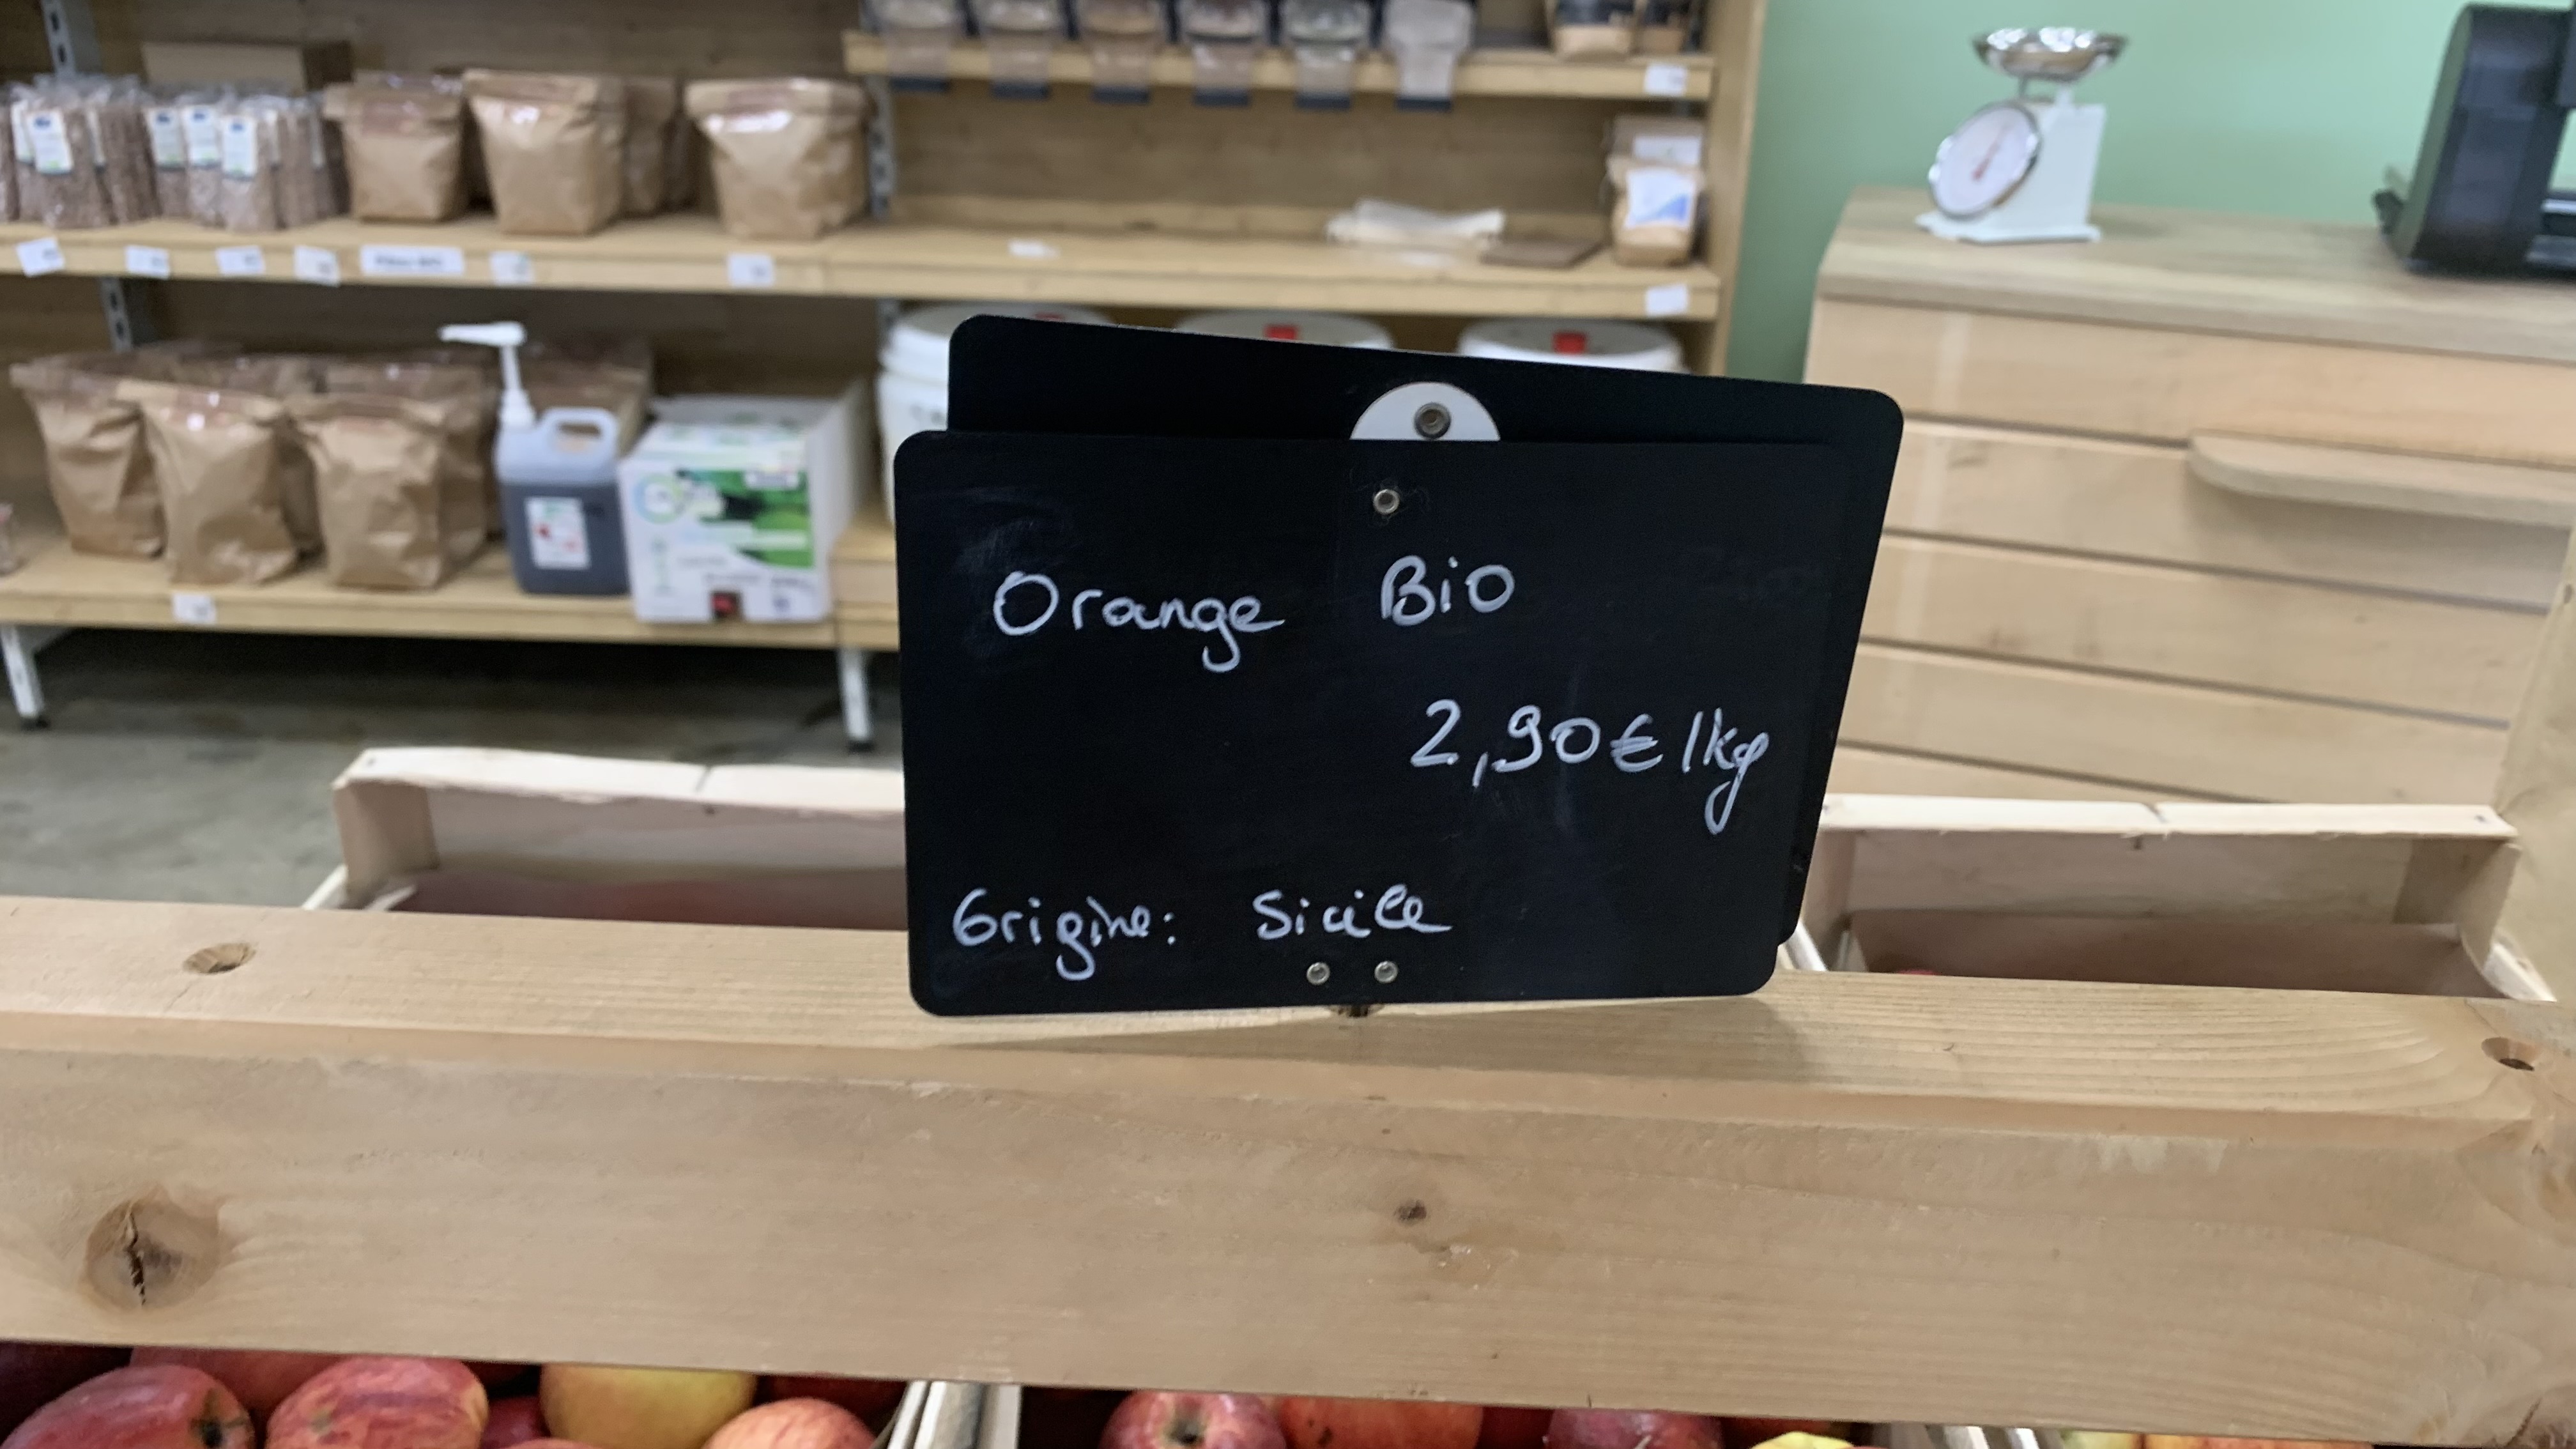 Orange Bio
2,90€/kg
Origine: Sicile